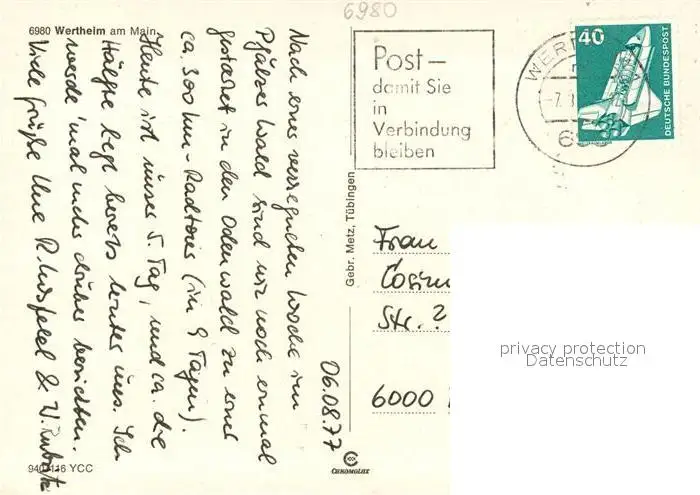 6980
6980 Wertheim am Main
Nach einer verregneten Woche im
Pfälzer Wald sind wir noch einmal
gestartet in den Odenwald zu einer
ca. 300 km-Radtour (in 9 Tagen).
Heute ist unser 5. Tag, und ca. die
Hälfte liegt bereits hinter uns. Ich
werde 'mal mehr drüber berichten.
Viele Grüße Ihre R. &
06.08.77
940/116 YCC
Gebr. Metz, Tübingen
CHROMOLUX
Post –
damit Sie
in
Verbindung
bleiben
WER
-7.
40
DEUTSCHE BUNDESPOST
Frau
Str. ?
6000
privacy protection
Datenschutz